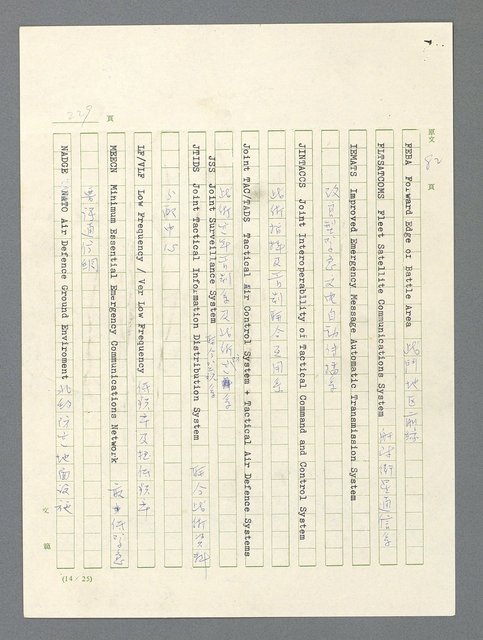 原文 82 頁
FEBA Forward Edge or Battle Area 戰鬥地區前緣
FLTSATCOMS Fleet Satellite Communications System 艦隊衛星通信系
IEMATS Improved Emergency Message Automatic Transmission System
改良型緊急文電自動傳遞系
JINTACCS Joint Interoperability of Tactical Command and Control System
戰術指揮及管制聯合互用系
Joint TAC/TADS Tactical Air Control System + Tactical Air Defense Systems
戰術空軍管制系及戰術空防系
JSS Joint Surveillance System
JTIDS Joint Tactical Information Distribution System 聯合戰術資料
分配中心
LF/VLF Low Frequency / Ver Low Frequency 低頻率及極低頻率
MEECN Minimum Essential Emergency Communications Network 最低緊急
要務通信網
NADGE NATO Air Defence Ground Enviroment 北約防空地面設施
229 頁
文範
(14×25)